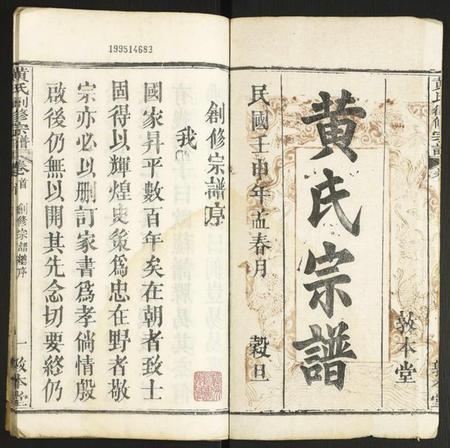 黃氏宗譜
民國壬申年孟春月 穀旦
敦本堂
199514683
創修宗譜序
我
國家昇平數百年矣在朝者致士
固得以輝煌史策為忠在野者敬
宗亦必以刪訂家書為孝倘情殷
啟後仍無以開其先念切要終仍
黃氏創修宗譜 卷首 創修宗譜序 一 敦本堂